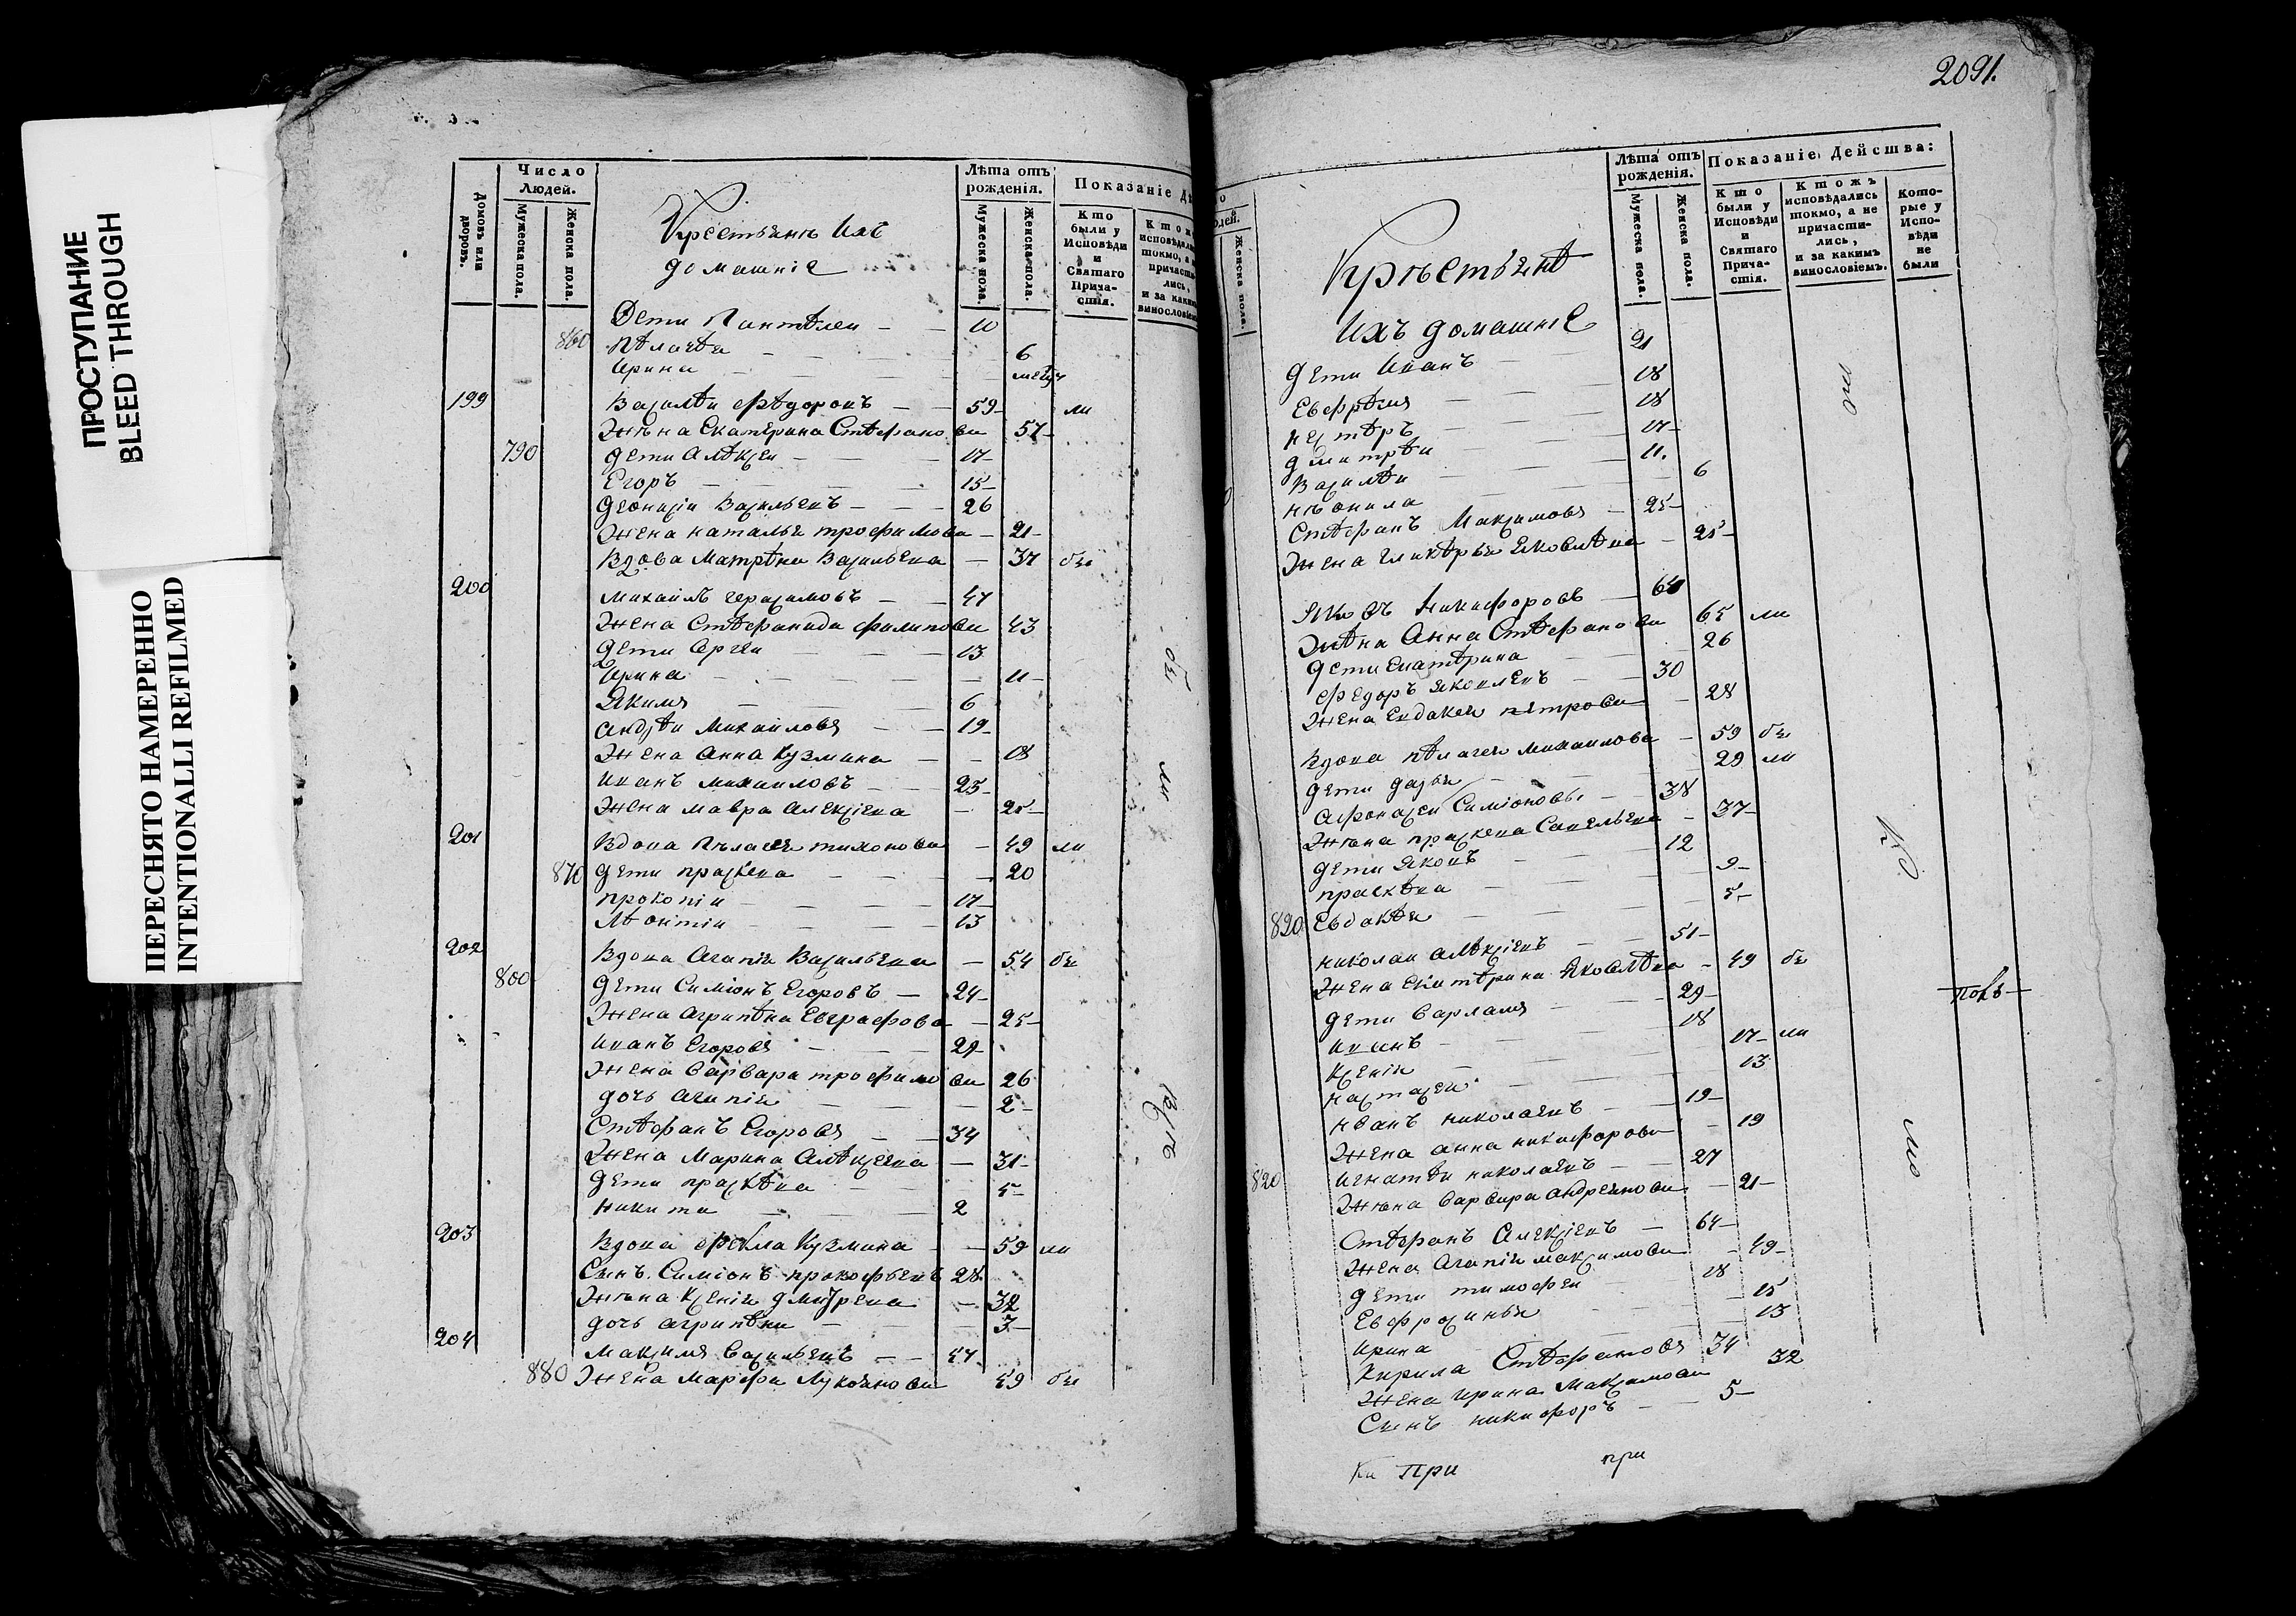 ПРОСТУПАНИЕ
BLEED THROUGH
ПЕРЕСНЯТО НАМЕРЕННО
INTENTIONALLI REFILMED
Домовъ или дворовъ.
Число Людей.
Мужеска пола.
Женска пола.
Крестьянѣ Ихъ
домашніе
Лѣта отъ рожденія.
Мужеска пола.
Женска пола.
Показаніе Дѣ
Кто были у Исповѣди и Святаго Прича-стія.
Кто исповѣдались токмо, а не причасти-лись, и за каким винословіем
Дети Пантѣлеи — — 10
860 Пѣлагѣя — — 6
Ирина — —
199 Василѣи Фѣдоровъ — — 59 ли
Жѣна Екатерина Стѣфанова 57
790 Дети Алѣксеи — — 17
Егоръ — — 15
Дѣонисіи Васильевъ — — 26
Жена Наталья трофимова — 21
Вдова Матрѣна Васильева — 37 бы
200 Михаилъ Герасимовъ — — 47
Жена Стѣфанида филипова 43
Дети Сергеи — — 13
Ирина — — 11
Якимъ — — 6
Андрѣи Михаиловъ — — 19
Жена Анна Кузмина — — 18
Иванъ михаиловъ — — 25
Жена мавра Алексіева — 25
201 Вдова Пѣлагея тихонова — 49 ли
870 Дети праскева — — 20
прокопіи — — 17
Лѣонтіи — — 13
202 Вдова Агапія Васильева — 54 бы
800 Дети Симіонъ Егоровъ — 24
Жена Агрипѣна Евграфова — 25
Иванъ Егоровъ — — 29
Жена Варвара трофимова 26
дочь Агапія — — 2
Стѣфанъ Егоровъ — — 34
Жена Марина Алѣксеева — 31
Дети праскѣва — — 5
Никита — — 2
203 Вдова Фекла Кузмина — 59 ли
Сынъ Симіонъ прокофьевъ 28
Жѣна Ксенія дмитрева — 32
дочь агрипѣна — — 3
204 Максимъ Васильевъ — — 47
880 Жена Марфа Лукоянова 49 бы
2091.
Женска пола.
Крѣстьянѣ
Ихъ домашніе
Лѣта отъ рожденія.
Мужеска пола.
Женска пола.
Показаніе Действа:
Кто были у Исповѣди и Святаго Прича-стія.
Ктожъ исповѣдались токмо, а не причасти-лись, и за какимъ винословіемъ.
Кото-рые у Испо-вѣди не были
Дети Иванъ — 21
Ефрѣмъ — 18
Нестѣръ — 18
Дмитрѣи — 17
Василѣи — 11.
Нѣонила — 6
Стѣфанъ Максимовъ — 25
Жена Гликѣрья Яковлѣва — 25
Яковъ Никифоровъ — 64
Жѣна Анна Стѣфанова 65 ли
Дети Екатѣрина — 26
Федоръ Яковлевъ — 30
Жена Евдокея петрова — 28
Вдова пѣлагея михаилова — 59 бы
Дети Дарья — 29 ли
Афонасеи Симіоновъ — 38
Жѣна праскева Савельева — 37
Дети Яковъ — 12
праскѣва — 9
820 Евдокѣя — 5
Николаи Алѣксіевъ — 51
Жена Екатѣрина Яковлѣва — 49 бы
Дети Варламъ — 29
Иванъ — 18
Ксенія — 17 ли
Настасея — 13
Иванъ Николаевъ — 19
Жена Анна Никифорова — 19
820 Игнатѣи николаевъ — 27
Жѣна Варвара Андреянова — 21
Стѣфанъ Алексіевъ — 64
Жена Агапія максимова — 49
Дети тимофеи — 18
Евфросинья — 15
Ирина — 13
Кирила Стѣфановъ 34
Жена Ирина Максимова 32
Сынъ никифоръ — 5
При
при